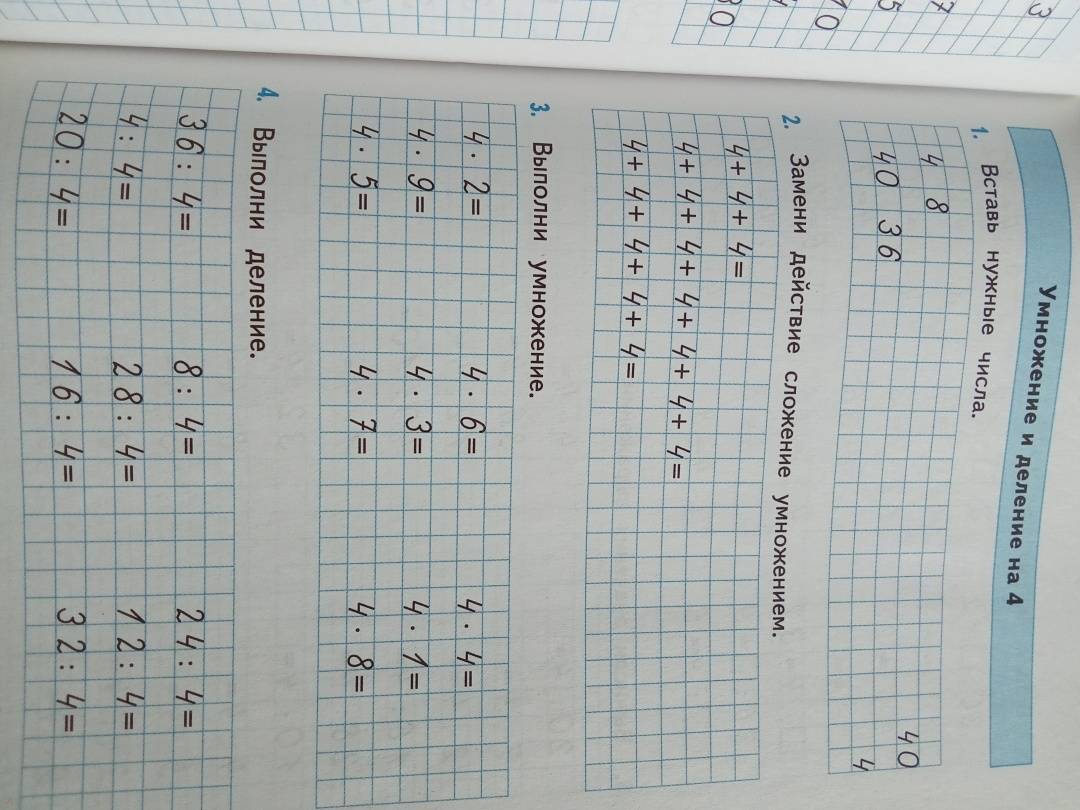 3
7
5
10
Умножение и деление на 4
1. Вставь нужные числа.
4 8 40
40 36 4
2. Замени действие сложение умножением.
4+ 4+ 4=
4+ 4+ 4+ 4+ 4+ 4+ 4=
4+ 4+ 4+ 4+ 4=
3. Выполни умножение.
4 · 2= 4 · 6= 4 · 4=
4 · 9= 4 · 3= 4 · 1=
4 · 5= 4 · 7= 4 · 8=
4. Выполни деление.
36: 4= 8: 4= 24: 4=
4: 4= 28: 4= 12: 4=
20: 4= 16: 4= 32: 4=